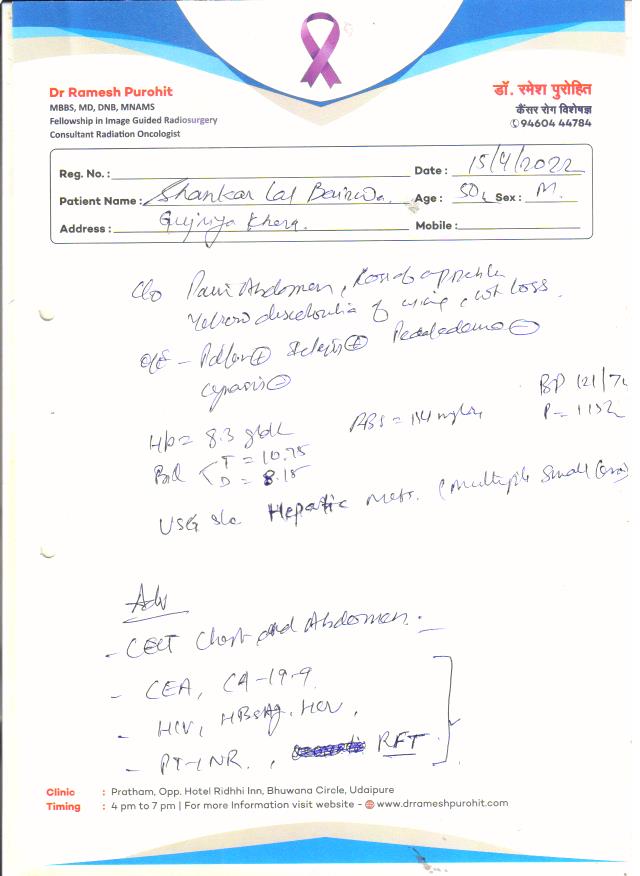 Dr Ramesh Purohit
MBBS, MD, DNB, MNAMS
Fellowship in Image Guided Radiosurgery
Consultant Radiation Oncologist
डॉ. रमेश पुरोहित
कैंसर रोग विशेषज्ञ
94604 44784
Reg. No. : Date : 15/4/2022
Patient Name : Shankar Lal Bairwa. Age : 50 Sex : M.
Address : Gujriya Khera. Mobile :
C/o Pain Abdomen, Loss of appetite
Yellow discolouration of urine, wt loss.
O/E - Pallor ⊕ Icterus ⊕ Pedal edema ⊖
cynosis ⊖
BP 121/7
Hb = 8.3 g/dl RBS = 114 mg/dl P = 115
Bil < T = 10.75
D = 8.15
USG s/o Hepatic Mets. (Multiple Small
Adv
- CECT Chest and Abdomen.
- CEA, CA-19-9
- HCV, HBsAg, HCV,
- PT-INR, RFT
Clinic : Pratham, Opp. Hotel Ridhhi Inn, Bhuwana Circle, Udaipure
Timing : 4 pm to 7 pm | For more Information visit website - www.drrameshpurohit.com